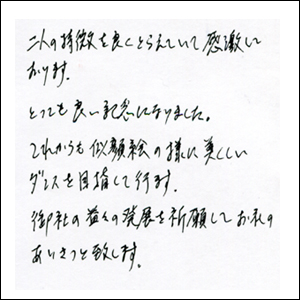 二人の特徴を良くとらえていて感激して
おります。
とっても良い記念になりました。
これからも似顔絵の様に美しい
ダンスを目指して行ます。
御社の益々の発展を祈願してお礼の
あいさつと致します。